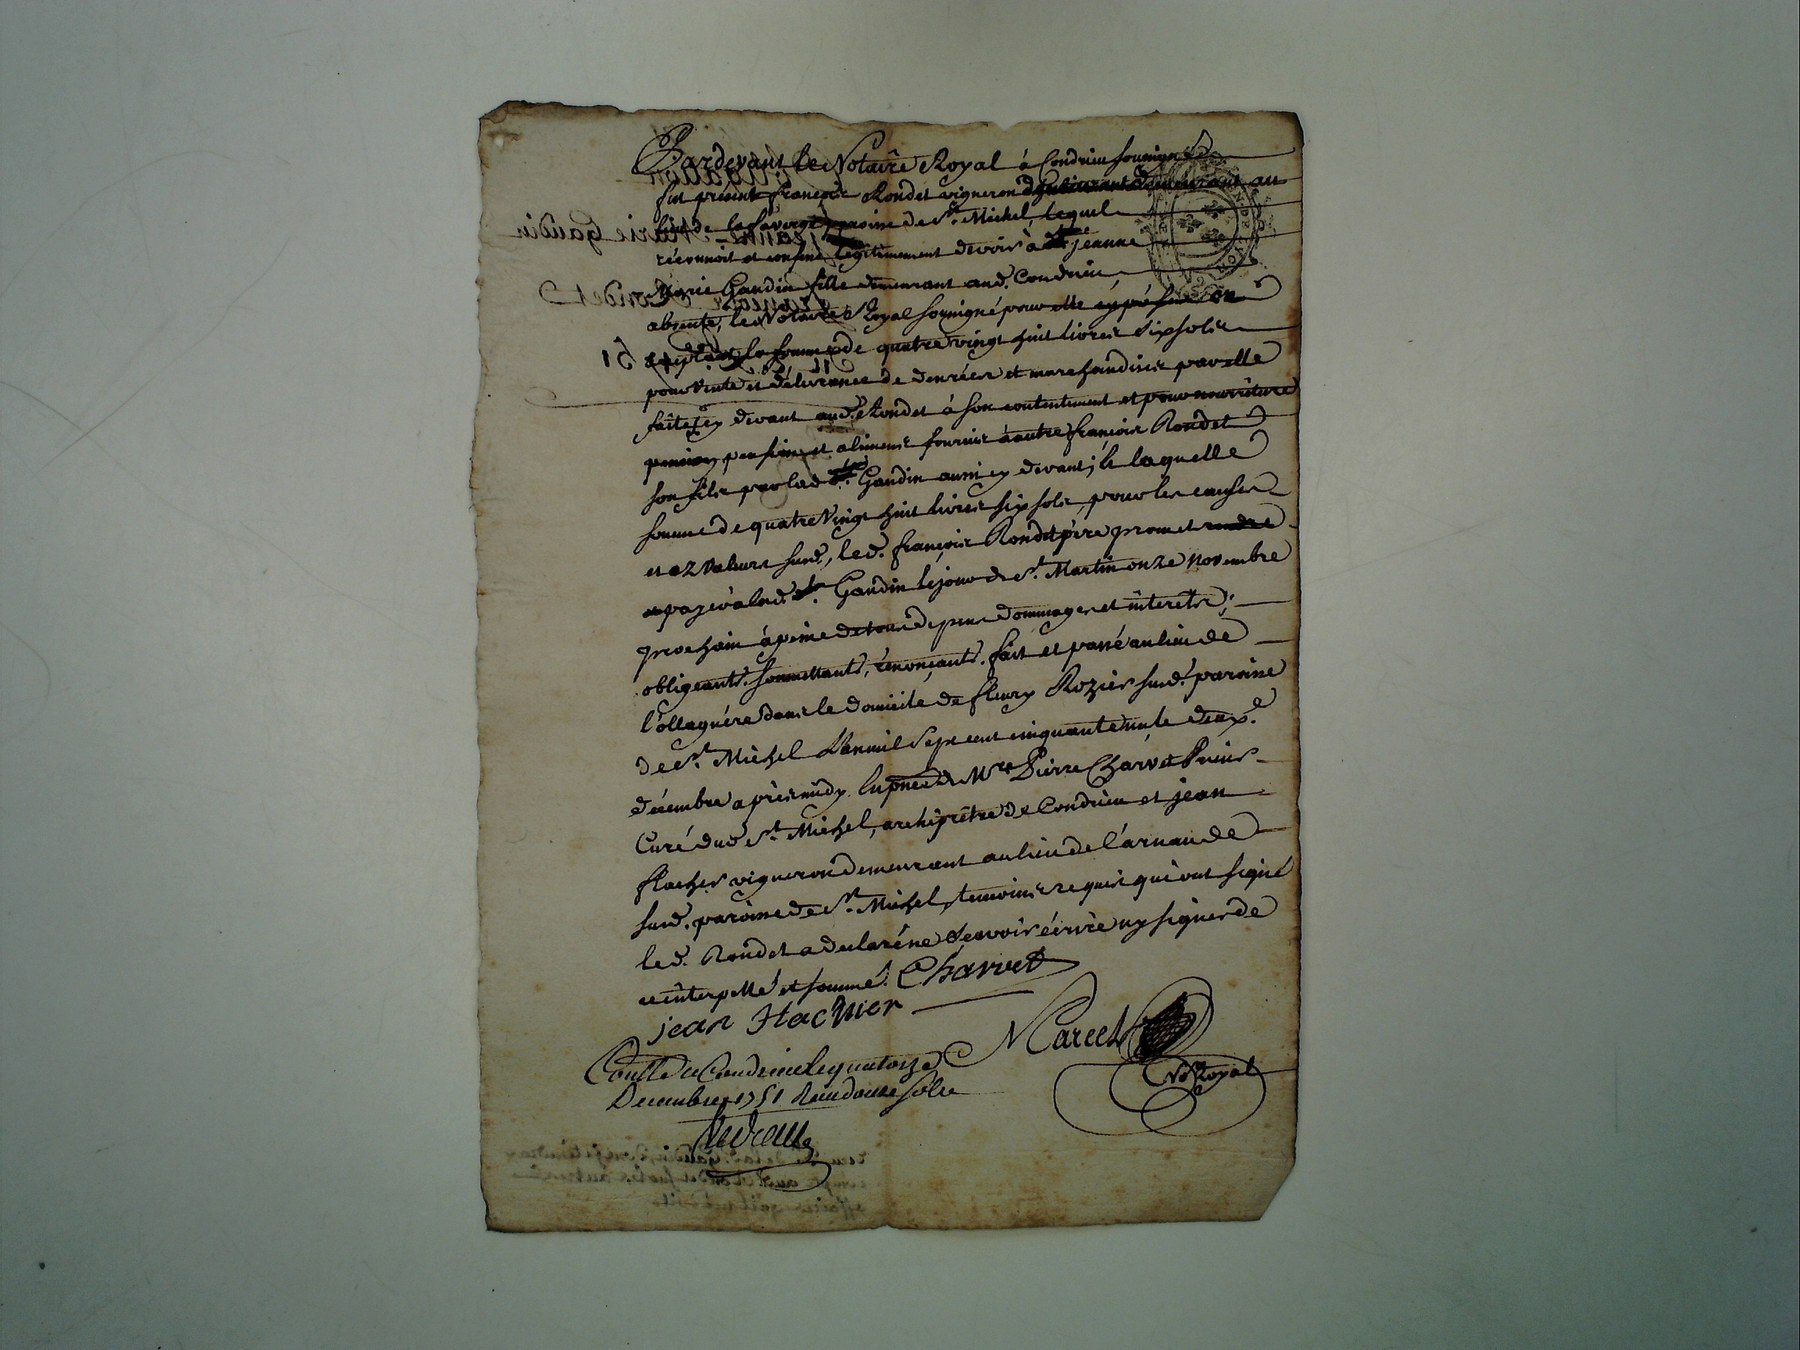 Pardevant le Notaire Royal à Condrieu soussigné
fut présent françois Rondet vigneron demeurant au
lieu de la paroisse de St. Michel, lequel
reconnoit et confesse légitimement devoir à jeanne
Marie Gaudin fille demeurant aud. Condrieu
absente, le Notaire Royal soussigné pour elle
la somme de quatre vingt huit livres six sols
pour vente et délivrance de denrées et marchandises par elle
faite cy devant aud. Rondet à son contentement et pour nourriture
pension et alimens fournis à autre françois Rondet
son fils par lad. Gaudin aussi cy devant; laquelle
somme de quatre vingt huit livres six sols, pour les causes
et valeurs susd., led. françois Rondet père promet
payer à lad. Gaudin le jour de St. Martin onze novembre
prochain à peine de tous depens dommages et interets;
obligeants, soumettants, renonçants. fait et passé au lieu de
l'ollagnére dans le domicile de fleury Rozier susd. paroisse
de St. Michel L'an mil sept cent cinquante un le deuxe.
décembre après midy. En présence de Mre Pierre Charvet Prieur
Curé dud. St. Michel, archiprêtre de Condrieu et jean
flacher vigneron demeurant au lieu de l'arnaude
susd. paroisse de St. Michel, temoins requis qui ont signé
led. Rondet a declaré ne sçavoir écrire ny signer de
ce interpellé et sommé. Charvet
jean flachier
Marcet
Contllé a Condrieu le quatorze
Nore Royal
Decembre 1751 Recu douze sols